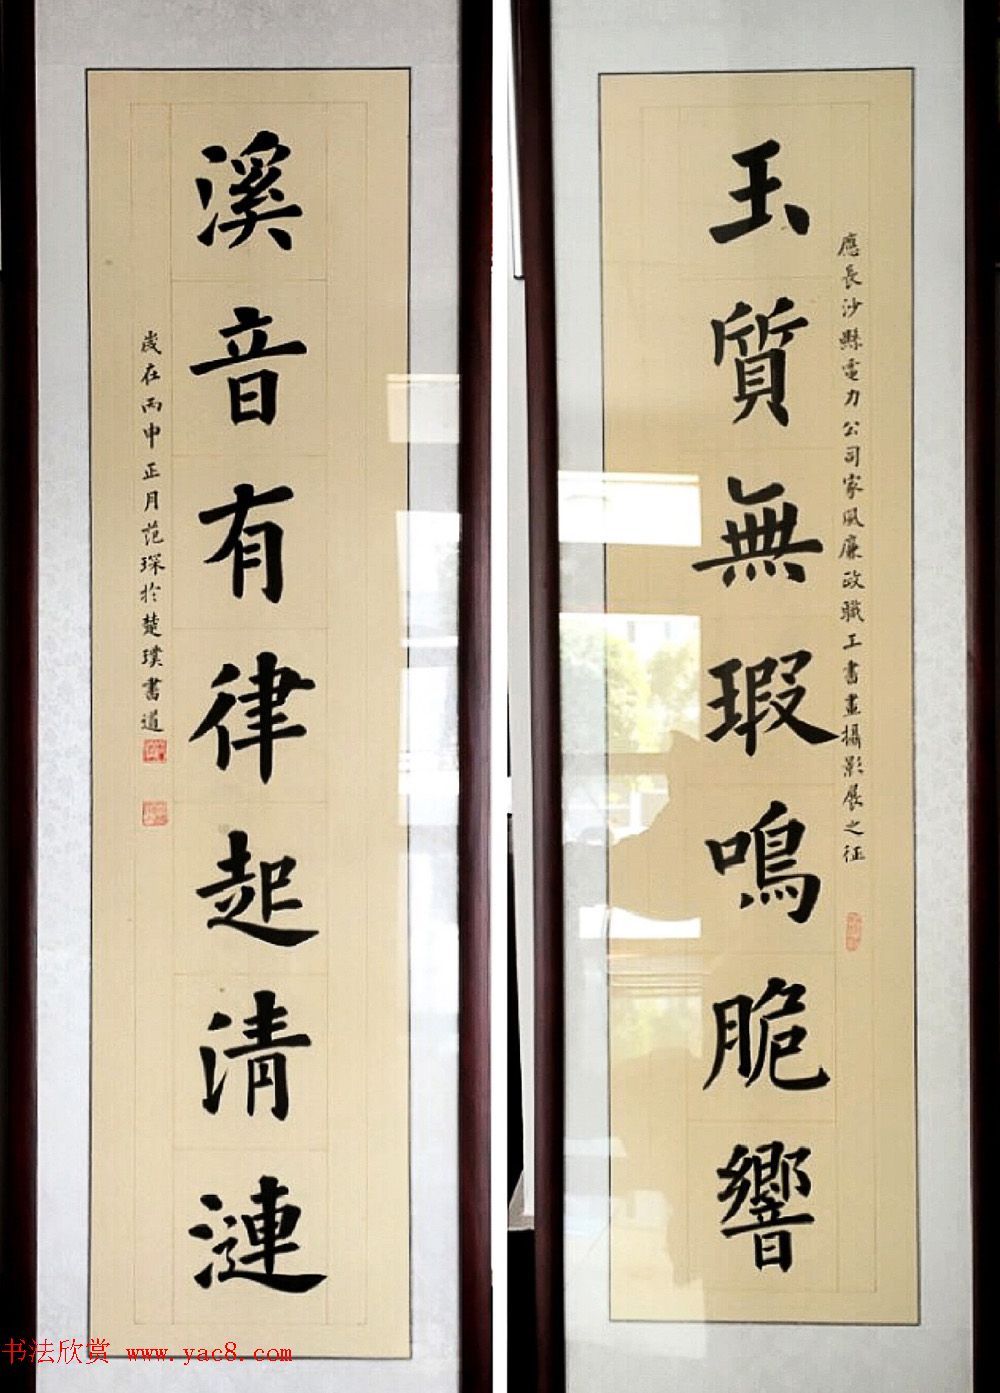 玉質無瑕鳴脆響
應長沙縣電力公司家風廉政職工書畫攝影展之征
溪音有律起清漣
歲在丙申正月范琛於楚璞書道
书法欣赏 www.yac8.com